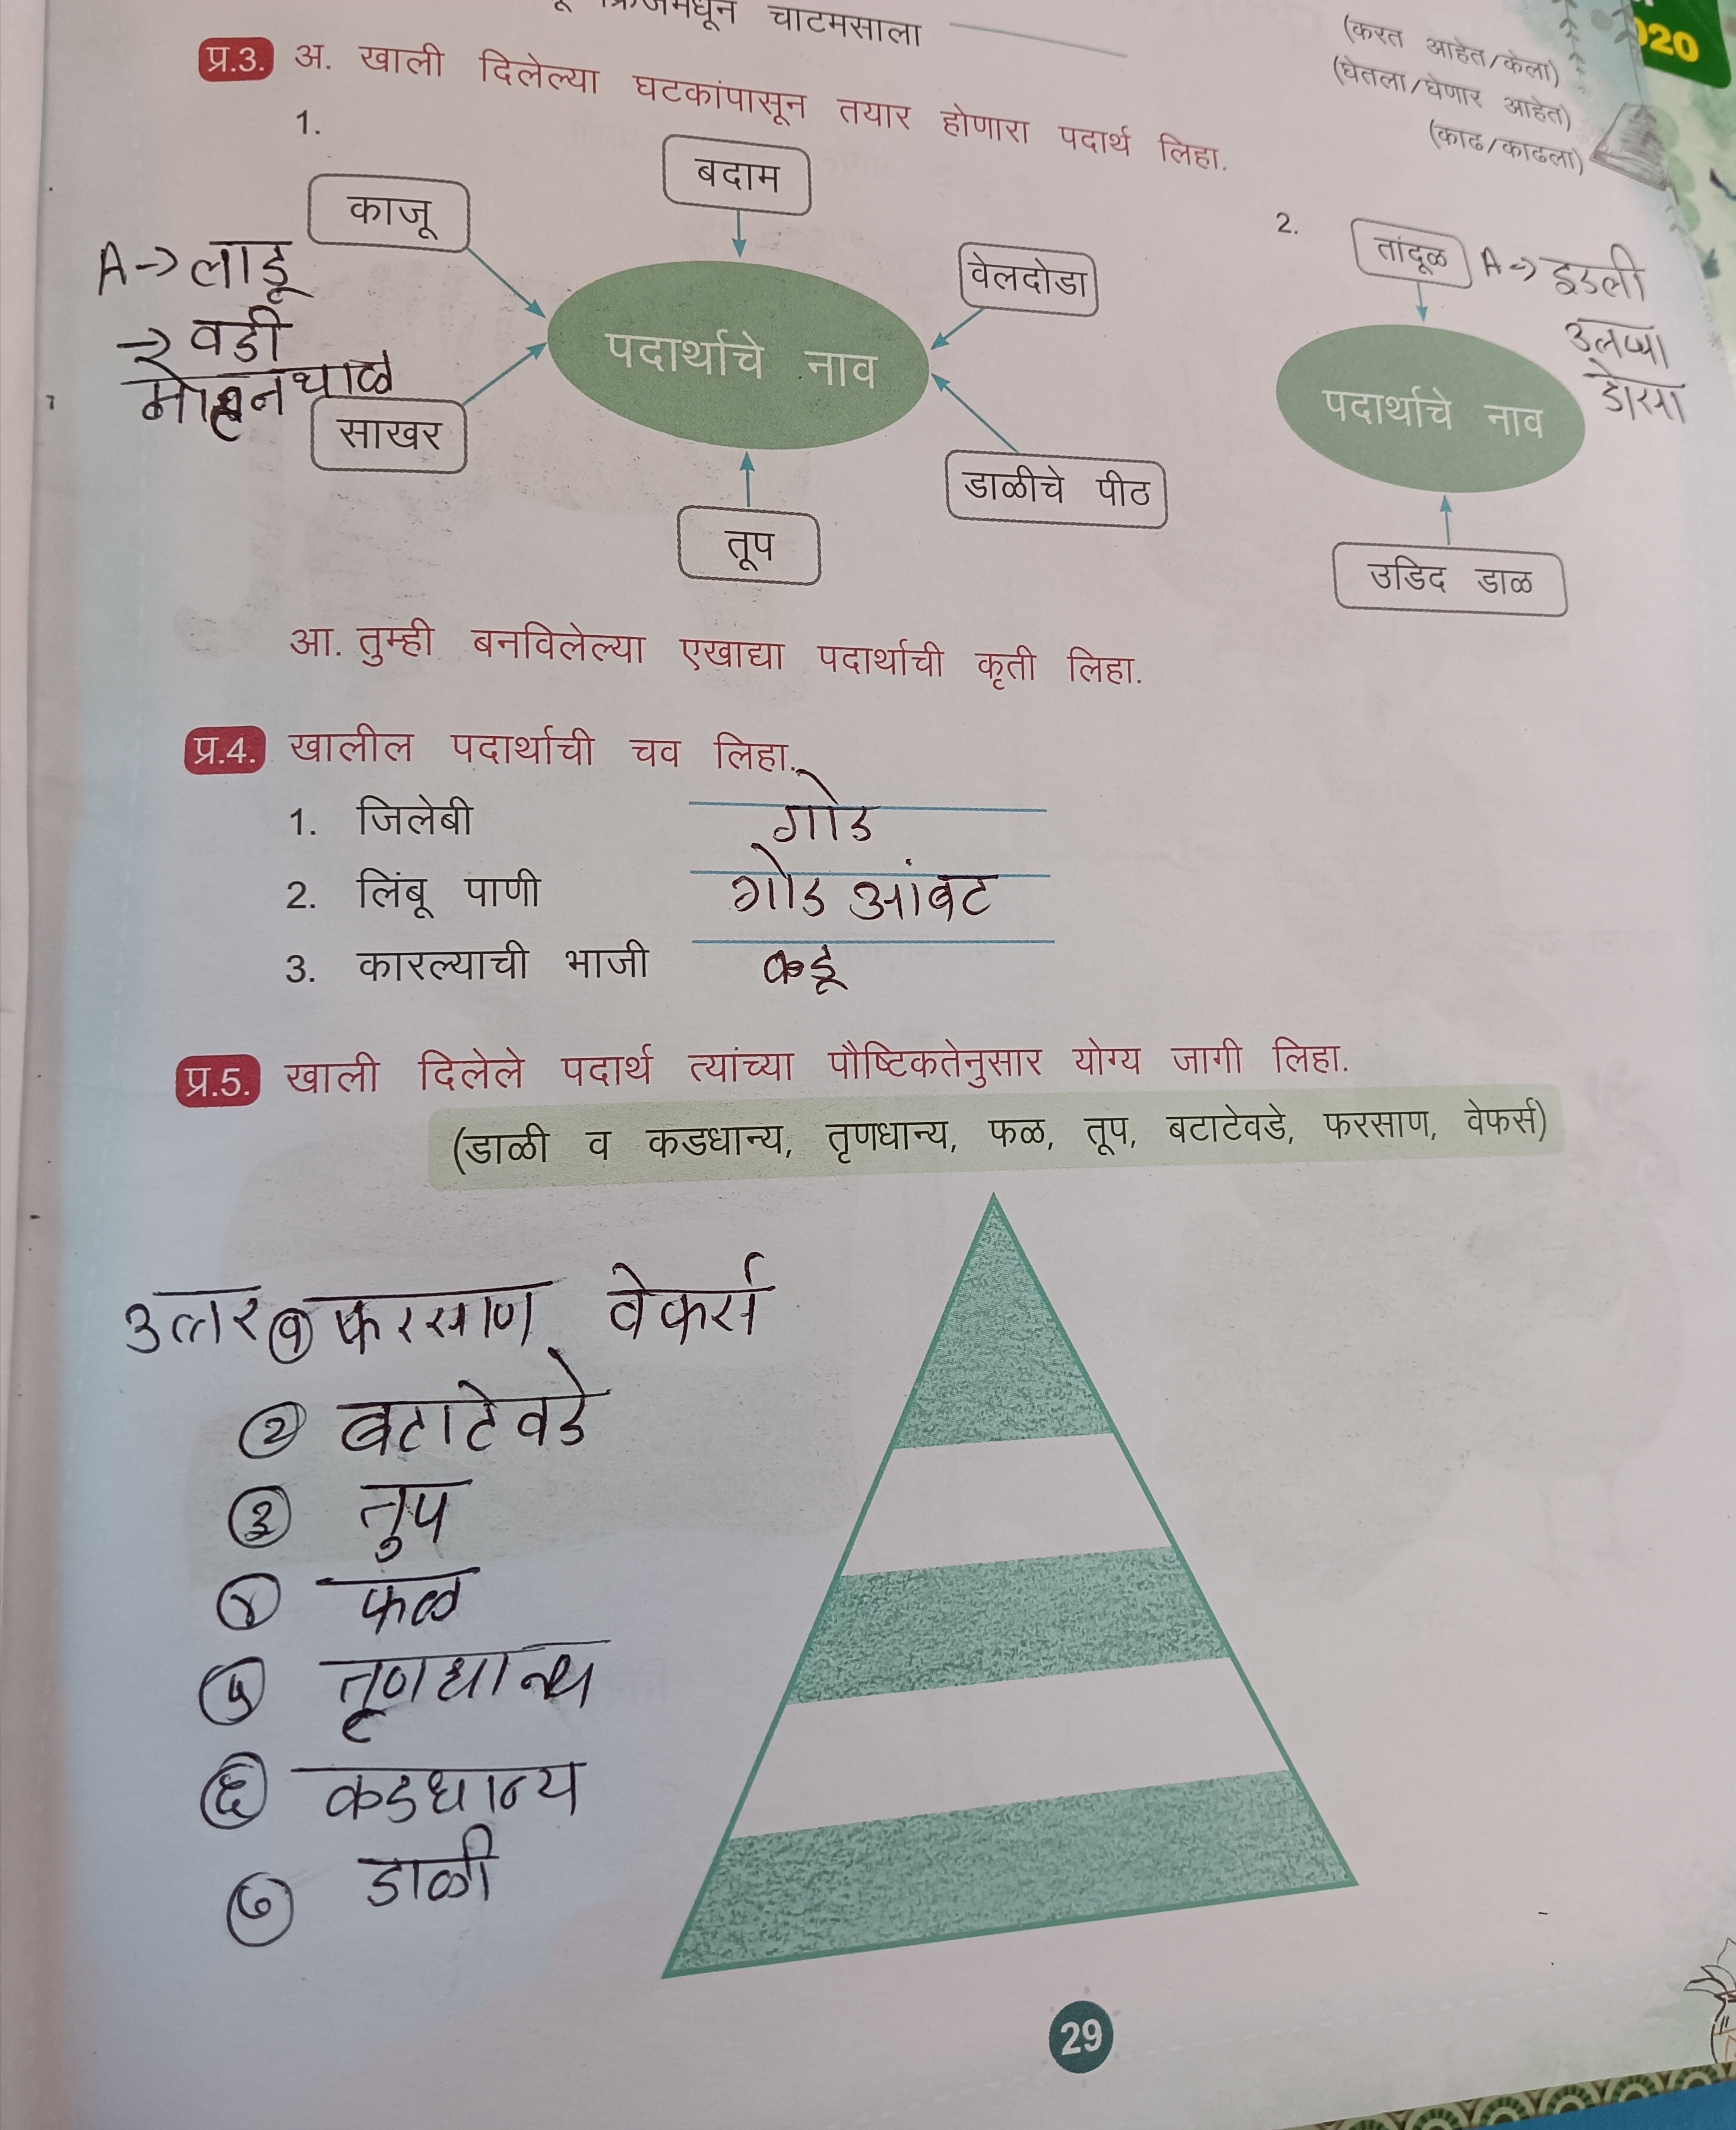 चाटमसाला
(करत आहेत/केला)
(घेतला/घेणार आहेत)
(काढ/काढला)
020
प्र.3. अ. खाली दिलेल्या घटकांपासून तयार होणारा पदार्थ लिहा.
1.
बदाम
काजू
वेलदोडा
A-> लाडू
-> वडी
मोहनथाळ
पदार्थाचे नाव
साखर
डाळीचे पीठ
तूप
2.
तांदूळ
A-> इडली
डोसा
पदार्थाचे नाव
उडिद डाळ
आ. तुम्ही बनविलेल्या एखाद्या पदार्थाची कृती लिहा.
प्र.4. खालील पदार्थाची चव लिहा.
1. जिलेबी गोड
2. लिंबू पाणी गोड आंबट
3. कारल्याची भाजी कडू
प्र.5. खाली दिलेले पदार्थ त्यांच्या पौष्टिकतेनुसार योग्य जागी लिहा.
(डाळी व कडधान्य, तृणधान्य, फळ, तूप, बटाटेवडे, फरसाण, वेफर्स)
उत्तर १ फरसाण वेफर्स
२ बटाटेवडे
३ तुप
४ फळ
५ तृणधान्य
६ कडधान्य
७ डाळी
29